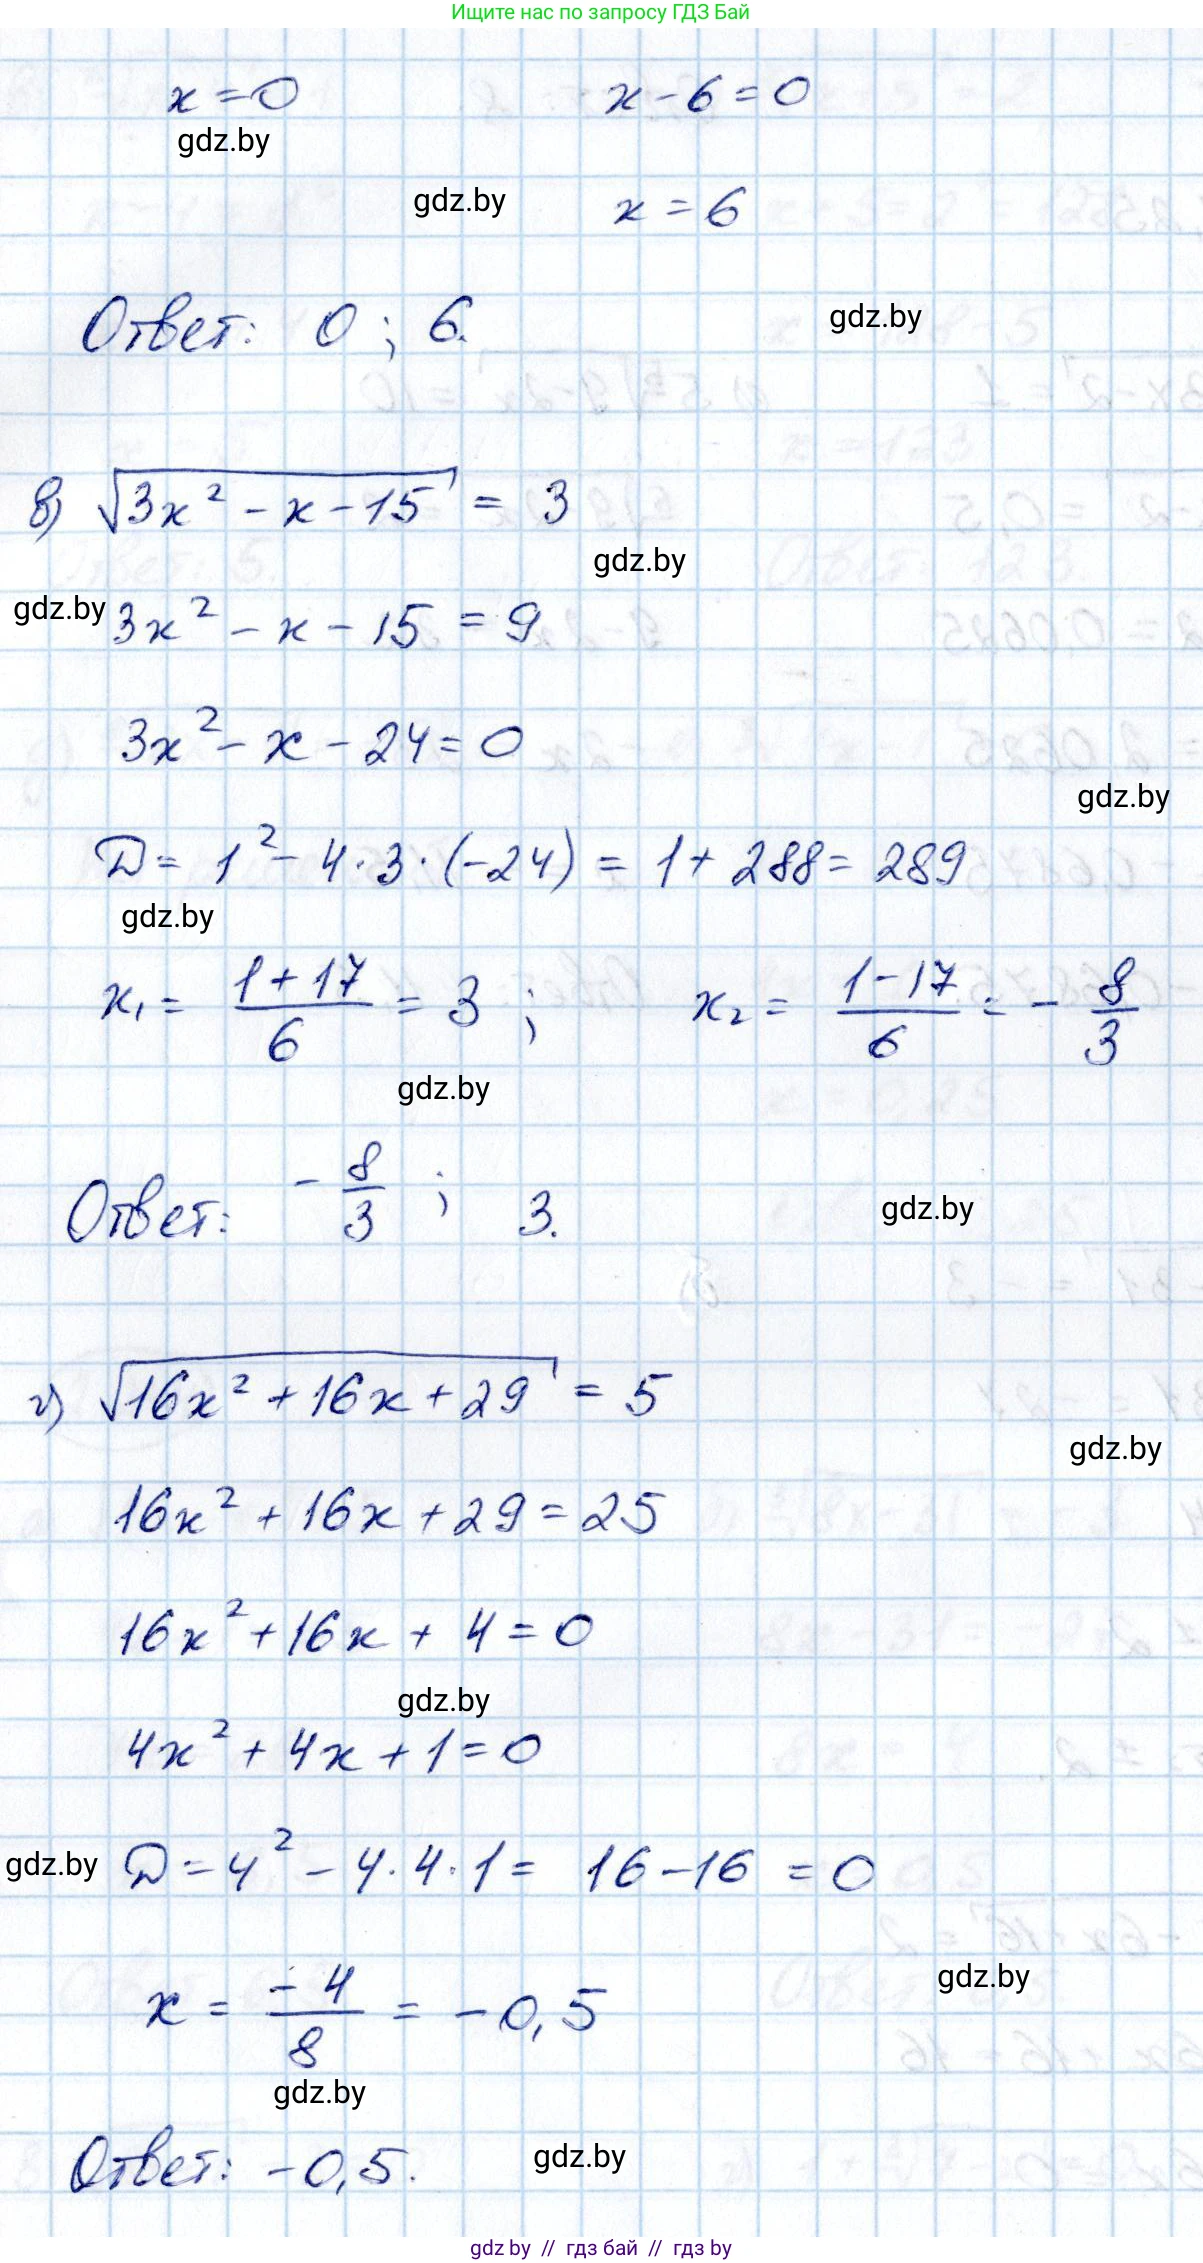 Ищите нас по запросу ГДЗ Бай
x = 0 x - 6 = 0
gdz.by
gdz.by x = 6
Ответ: 0 ; 6. gdz.by
в) √(3x² - x - 15) = 3
gdz.by
gdz.by 3x² - x - 15 = 9
3x² - x - 24 = 0
gdz.by
D = 1² - 4 · 3 · (-24) = 1 + 288 = 289
gdz.by
x₁ = (1 + 17)/6 = 3 ; x₂ = (1 - 17)/6 = - 8/3
gdz.by
Ответ: - 8/3 ; 3. gdz.by
г) √(16x² + 16x + 29) = 5
gdz.by
16x² + 16x + 29 = 25
16x² + 16x + 4 = 0
gdz.by
4x² + 4x + 1 = 0
gdz.by D = 4² - 4 · 4 · 1 = 16 - 16 = 0
gdz.by
x = -4/8 = -0,5
gdz.by
Ответ: -0,5. gdz.by
gdz by // гдз бай // гдз by